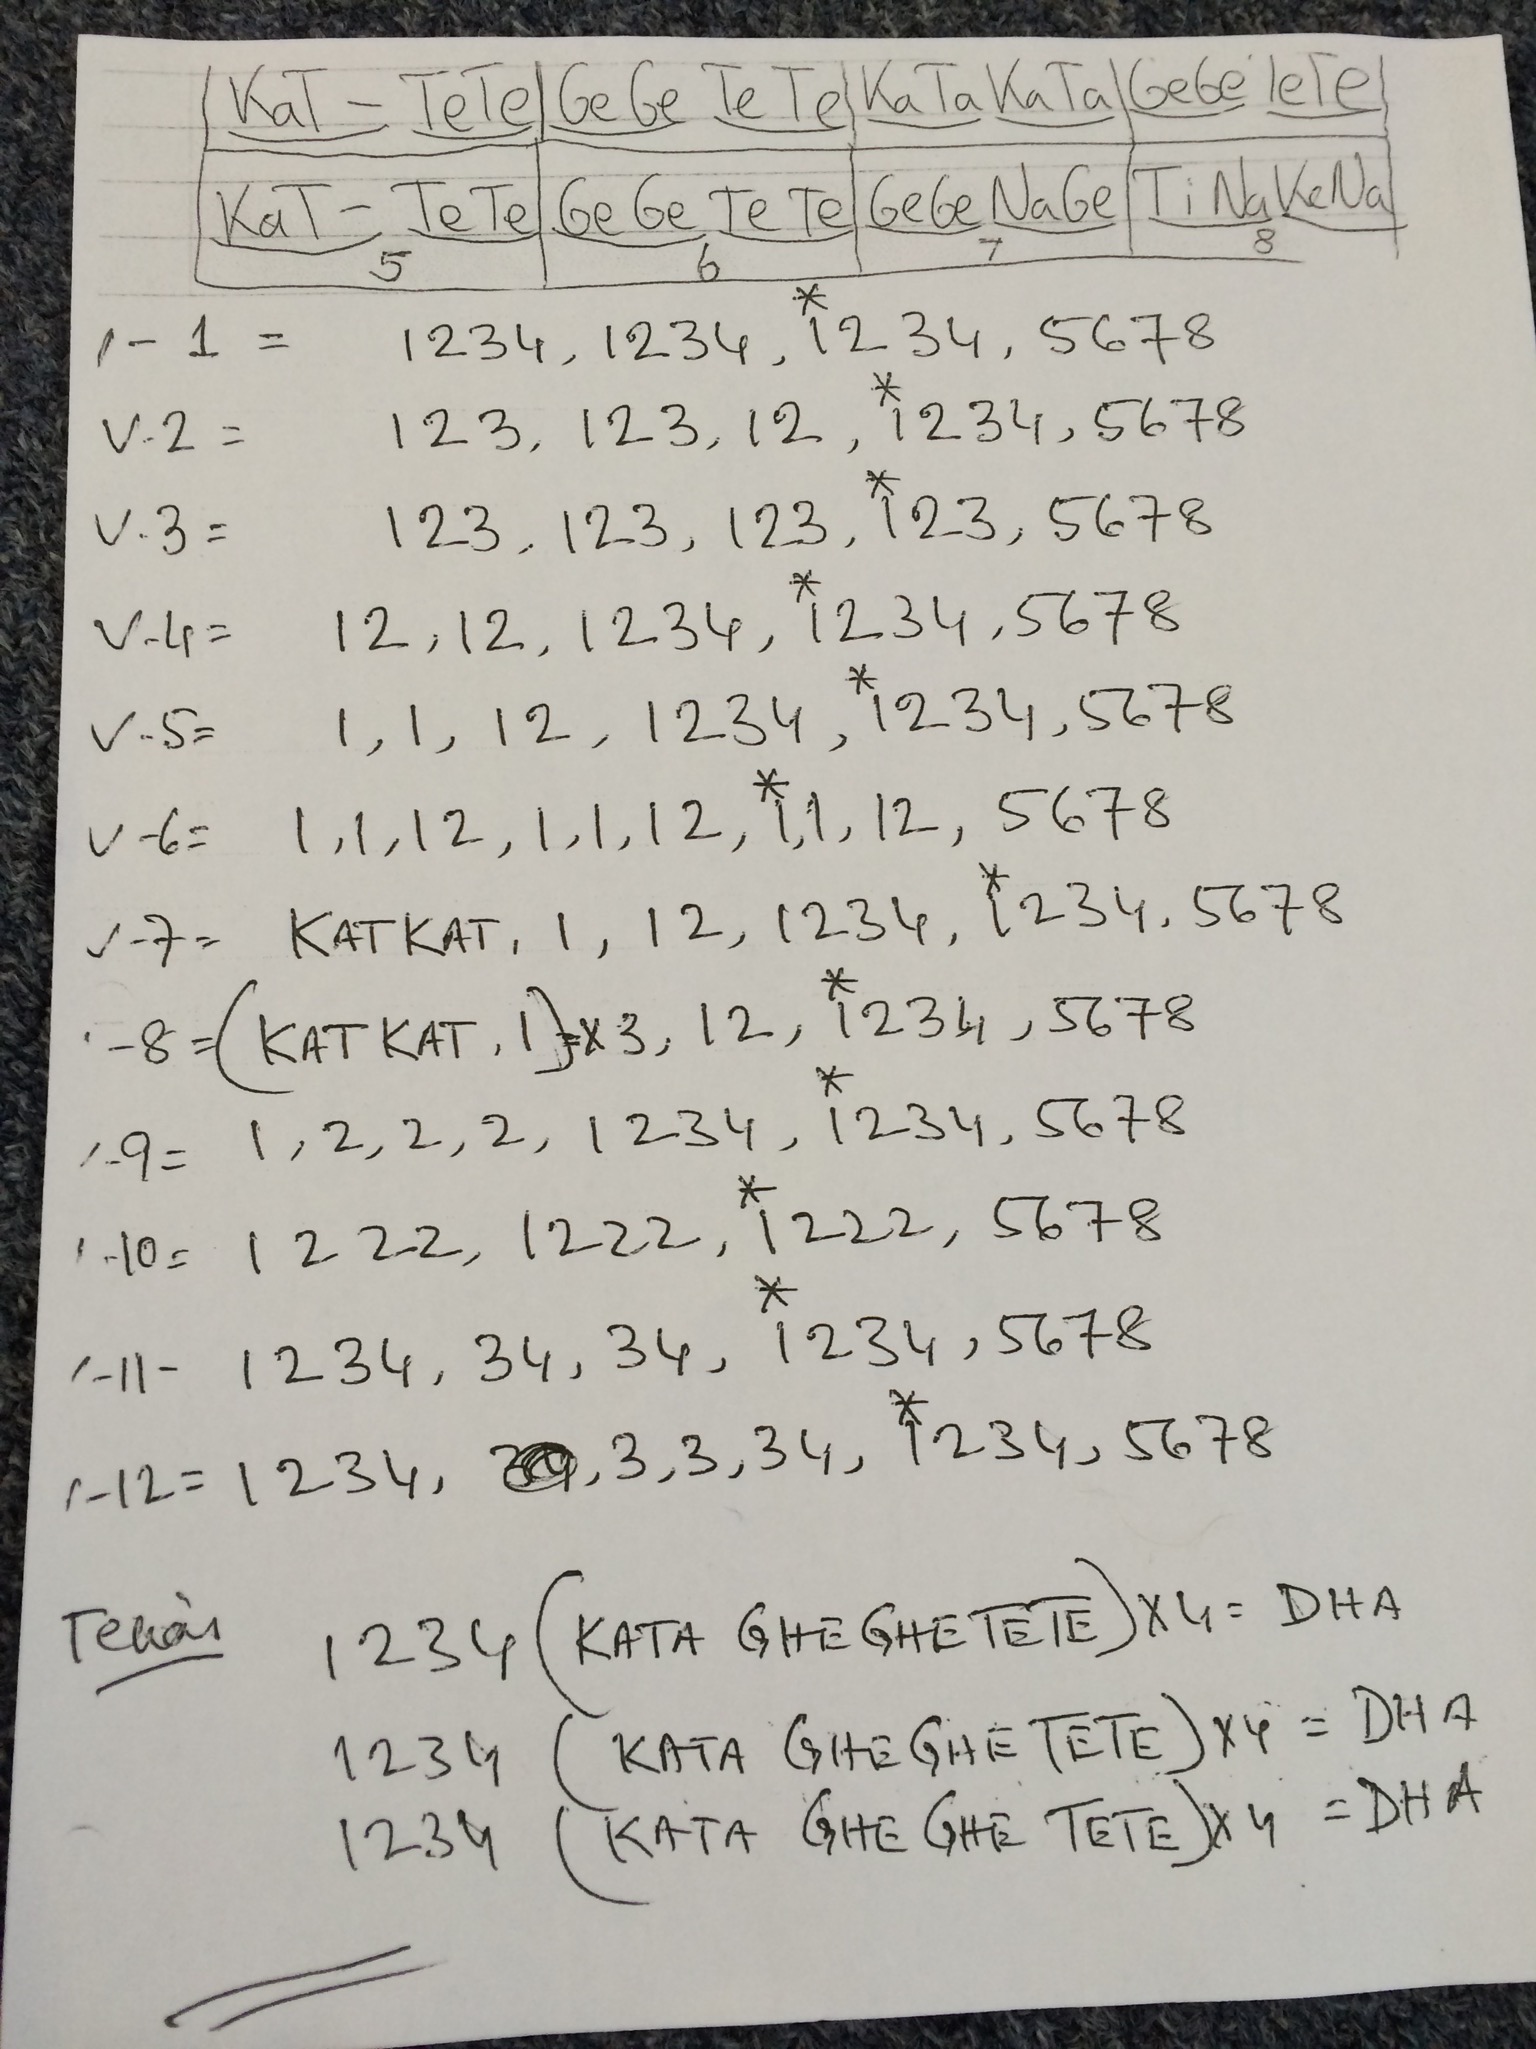 KaT - TeTe | GeGe TeTe | KaTa KaTa | GeGe TeTe
KaT - TeTe | GeGe TeTe | GeGe NaGe | TiNa KeNa
5 6 7 8
- 1 = 1234, 1234, *1234, 5678
V-2 = 123, 123, 12, *1234, 5678
V-3 = 123, 123, 123, *123, 5678
V-4 = 12, 12, 1234, *1234, 5678
V-5 = 1, 1, 12, 1234, *1234, 5678
V-6 = 1,1,12, 1,1,12, *1,1,12, 5678
V-7 = KATKAT, 1, 12, 1234, *1234, 5678
-8 = (KATKAT, 1) x3, 12, *1234, 5678
-9 = 1, 2, 2, 2, 1234, *1234, 5678
-10 = 1222, 1222, *1222, 5678
-11 - 1234, 34, 34, *1234, 5678
-12 = 1234, 3, 3, 34, *1234, 5678
1234 (KATA GHEGHE TETE) x4 = DHA
1234 (KATA GHEGHE TETE) x4 = DHA
1234 (KATA GHEGHE TETE) x4 = DHA